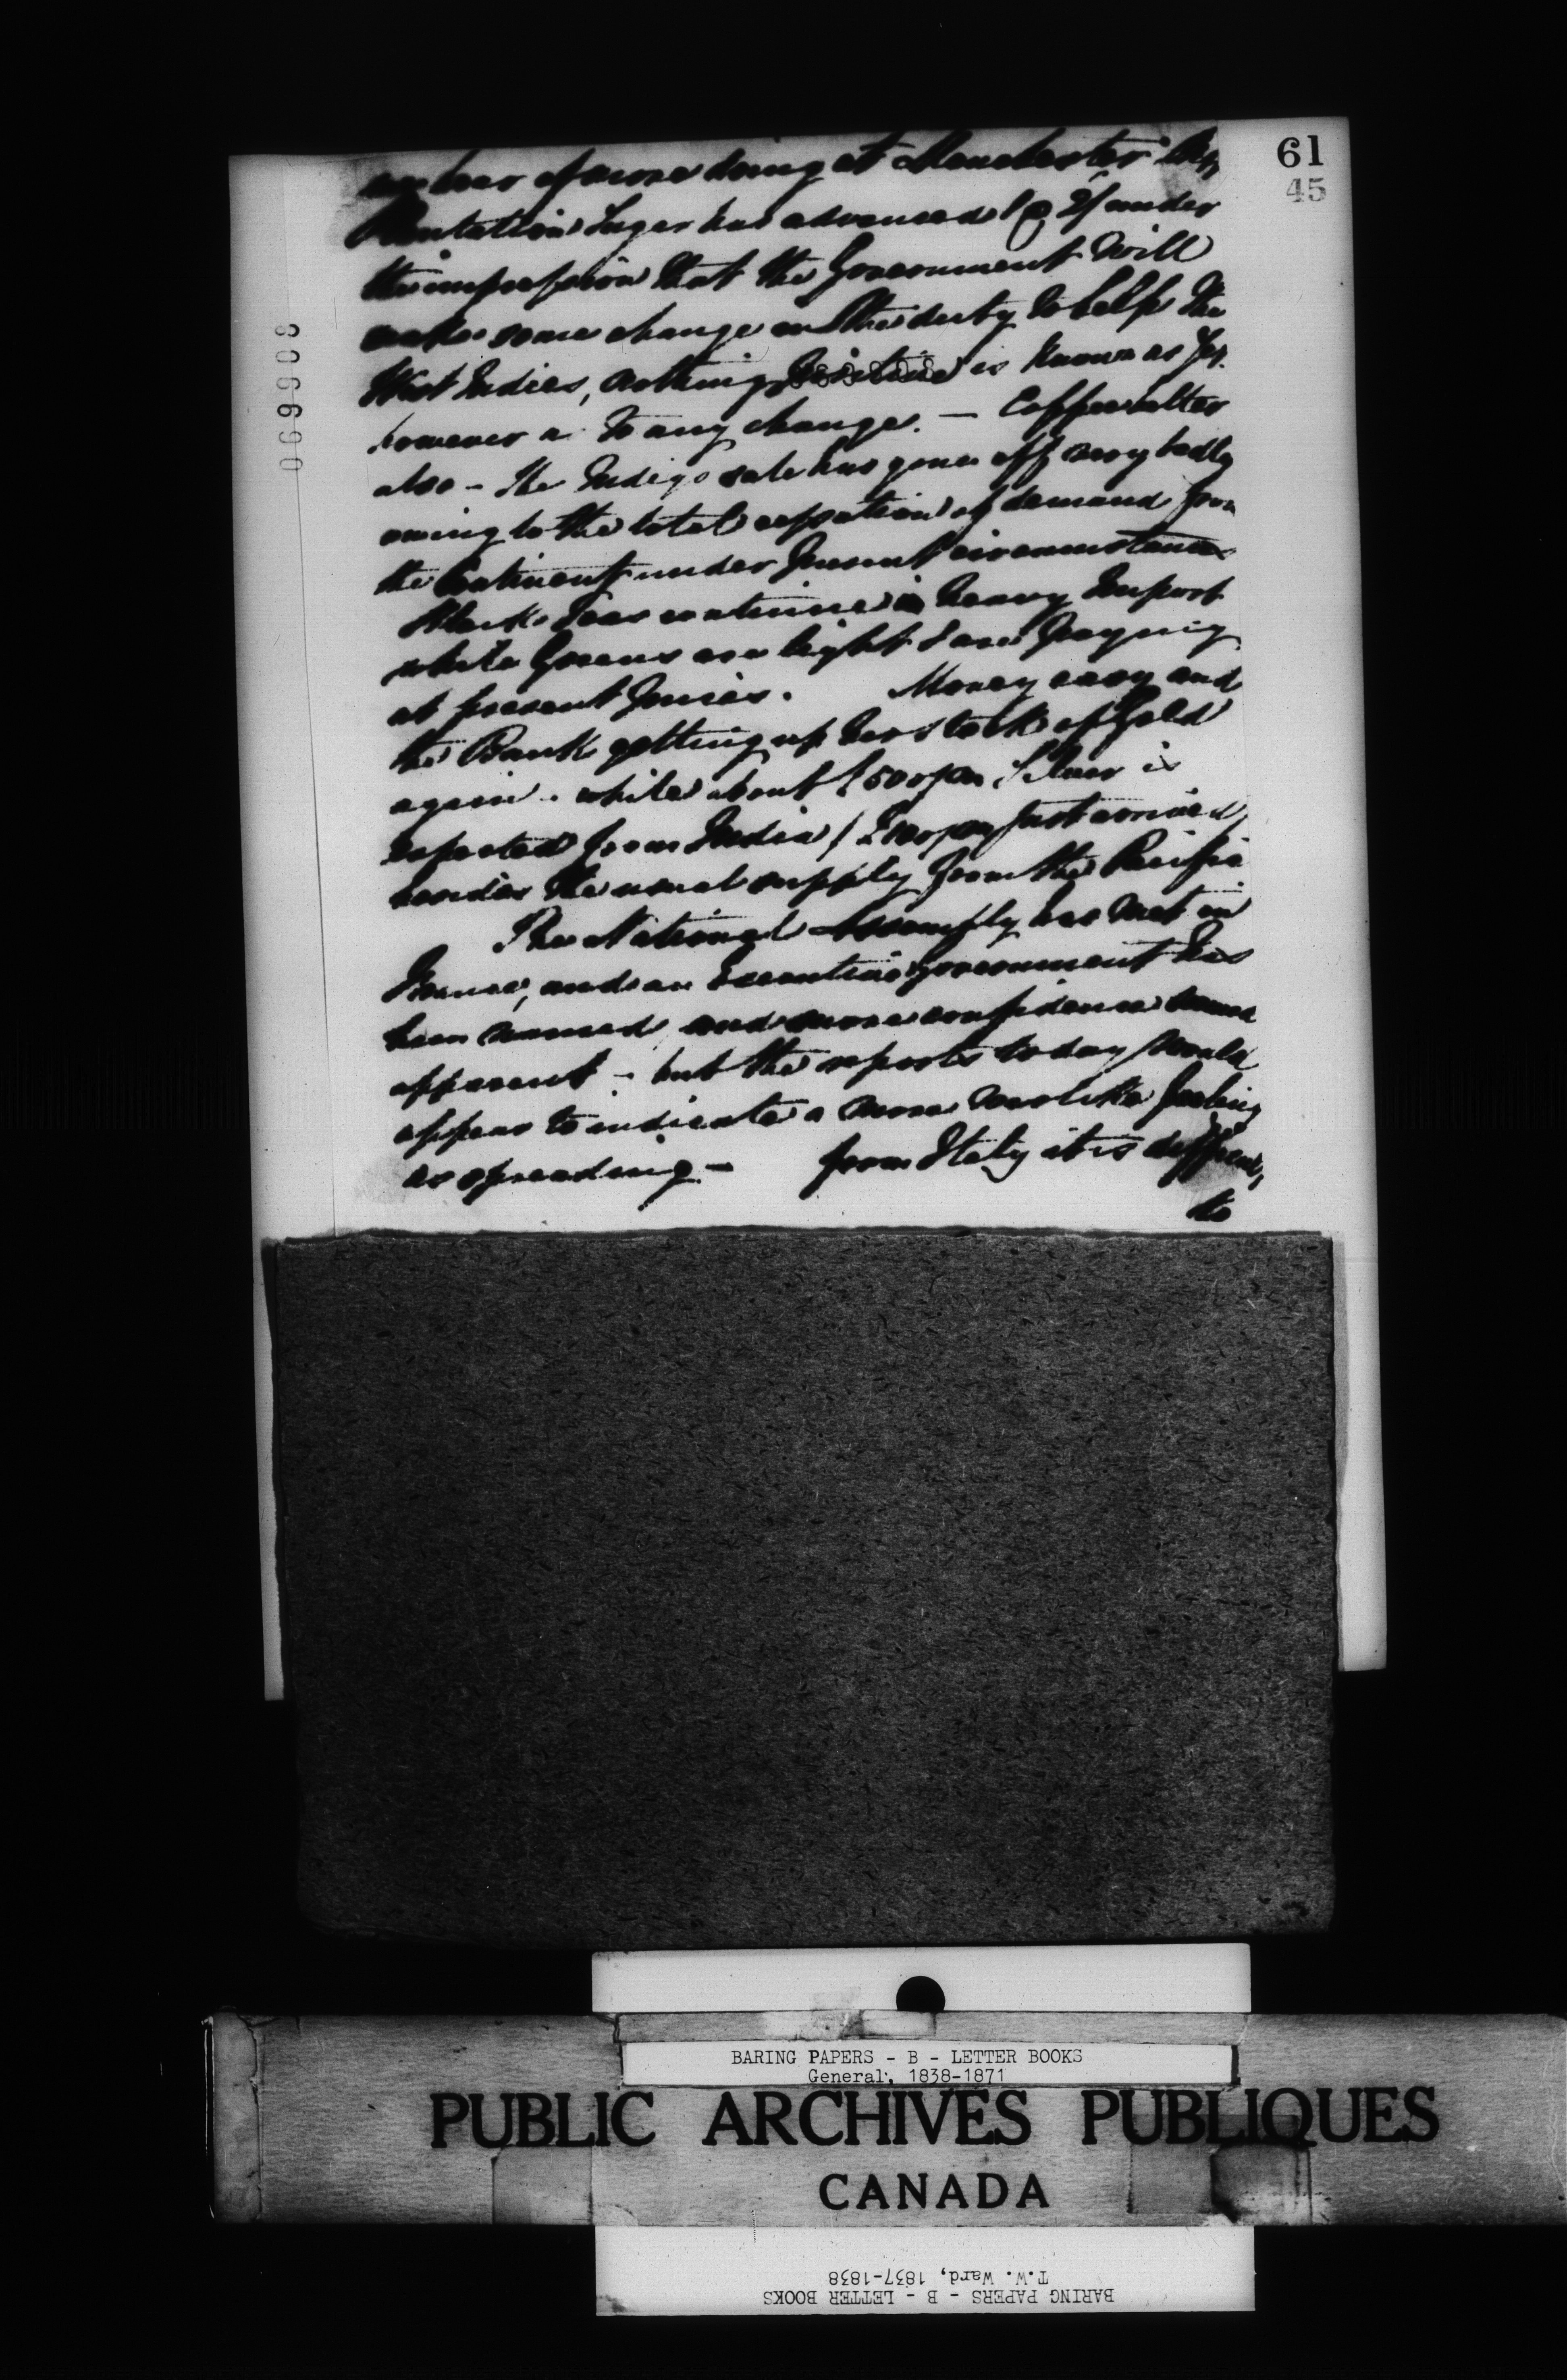 61
45
069908
we hear of more doing at Manchester
Plantation Sugar has advanced 1 @ 2/ under
the impression that the Government will
make some change in the duty to help the
West Indies, nothing positive is known as yet
however as to any change. — Coffee
also – the Indigo sale has gone off very badly
owing to the total cessation of demand from
the Continent under present circumstances
Black Teas continue in heavy import
while Greens are light & are paying
at present prices. Money easy and
the Bank getting up her stock of Gold
again – while about £500/m Silver is
expected from India / just arrived
besides the usual supply from the Pacific
The National Assembly has met in
France, and an Executive Government has
been named and more confidence
apparent – but the reports today would
appear to indicate a more warlike feeling
as spreading – from Italy it is
to
BARING PAPERS - B - LETTER BOOKS
General, 1838-1871
PUBLIC ARCHIVES PUBLIQUES
CANADA
T.W. Ward, 1837-1838
BARING PAPERS - B - LETTER BOOKS